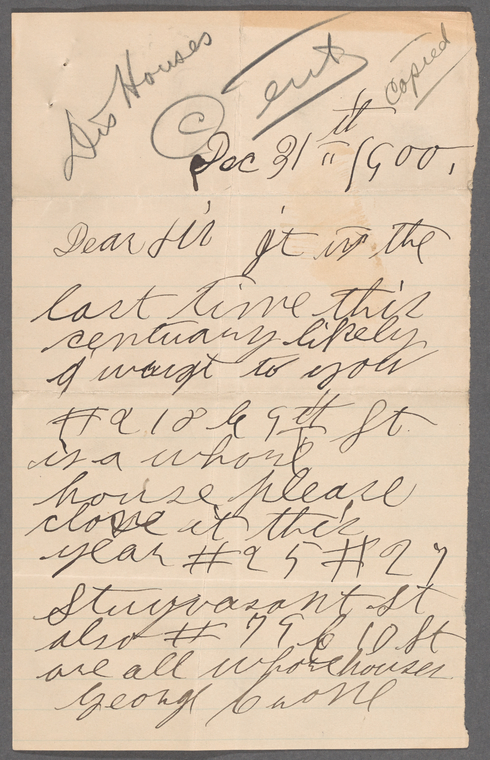 Dis Houses
©
ent
Copied
Dec 31th 1900,
Dear Sir it is the
last time this
sentuary likely
I waigt to you
#218 E 9th St.
is a whore
house please
close it this
year #25 #27
Stuyvasant St
also # 79 E 10 St
are all whorehouses
George